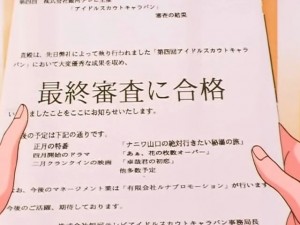 審査の結果
貴殿は、先日弊社によって執り行われました「第四話アイドルスカウトキャラ
バン」において大変優秀な成果を収め、
最終審査に合格
いたしましたことをここにお知らせいたします。
後の予定は下記の通りです。
正月の特番 「ナニワ山口の絶対行きたい秘境の旅」
四月開始のドラマ 「あぁ、花の枚数オーバー」
二月クランクインの映画 「卓哉君の初恋」
他多数予定
お、今後のマネージメント業は「有限会社ルナプロモーション」が行います
今後のご活躍、期待しております。
アイドルスカウトキャラバン事務局長